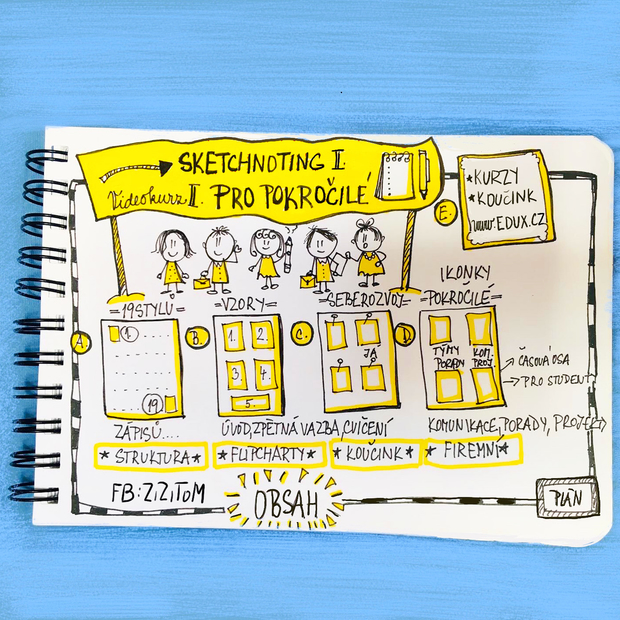 SKETCHNOTING II.
Videokurz II. PRO POKROČILÉ
E.
*KURZY
*KOUČINK
www.EDUX.CZ
=19STYLŮ=
=VZORY=
=SEBEROZVOJ=
IKONKY
=POKROČILÉ=
A.
1.
19.
B.
1. 2.
3. 4.
5.
C.
JÁ
D.
TÝMY
PORADY
KOM.
PROJ.
→ ČASOVÁ OSA
→ PRO STUDENTY
ZÁPISŮ....
ÚVOD, ZPĚTNÁ VAZBA, CVIČENÍ
KOMUNIKACE, PORADY, PROJEKTY
* STRUKTURA*
*FLIPCHARTY*
*KOUČINK*
* FIREMNÍ*
FB: ZiZiToM
OBSAH
PLÁN